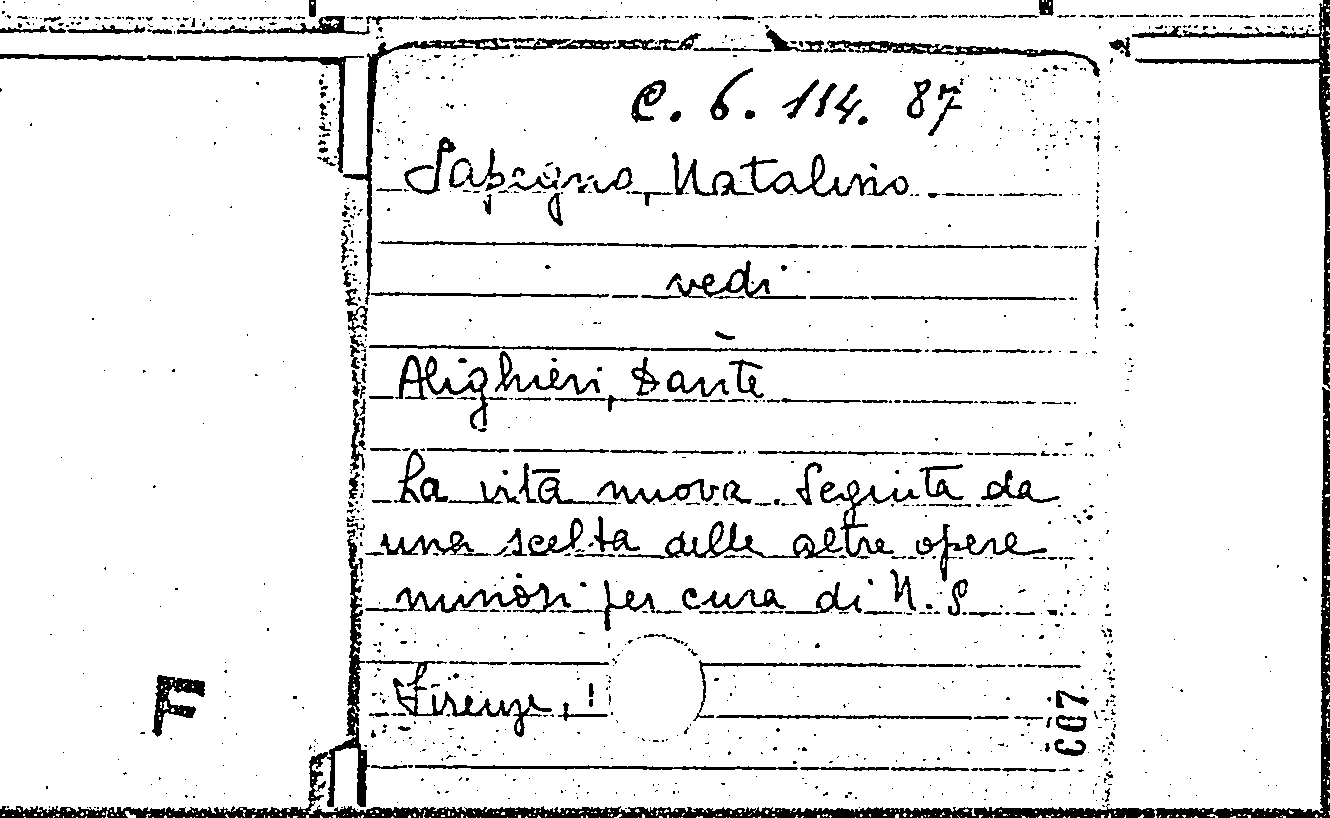 C. 6. 114. 87
Sapegno, Natalino.
vedi
Alighieri, Dante
La vita nuova. Seguita da
una scelta delle altre opere
minori per cura di N. S.
Firenze,
F
C07